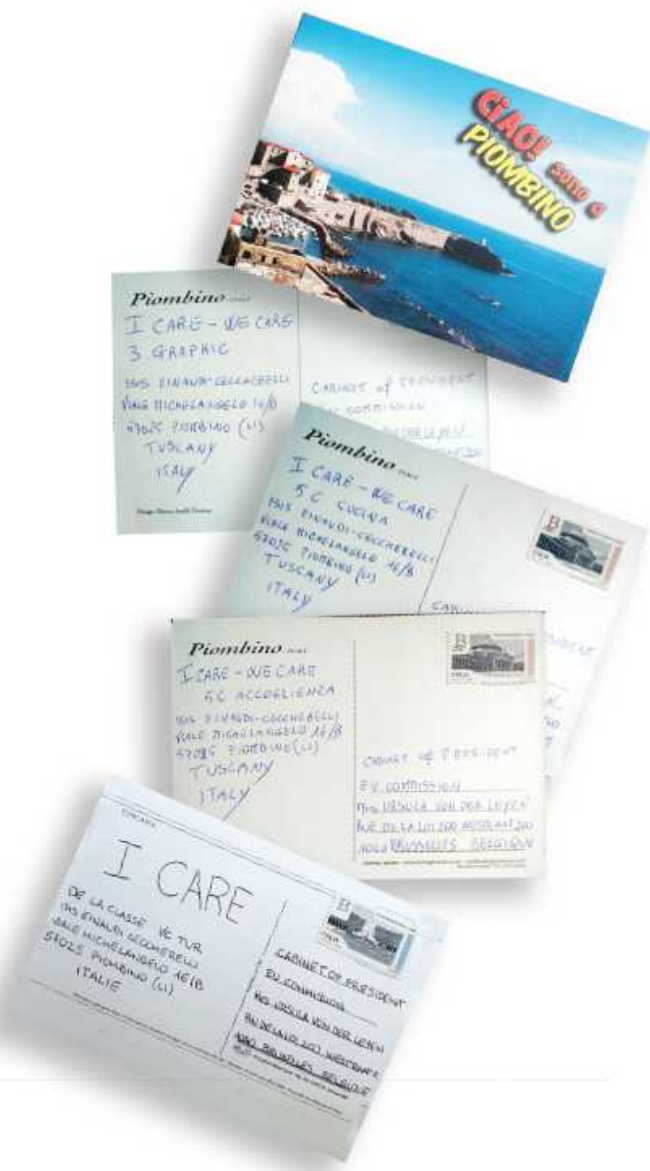 CIAO! sono a
PIOMBINO
Piombino
I CARE - WE CARE
3 GRAPHIC
ISIS EINAUDI-CECCHERELLI
VIALE MICHELANGELO 16/B
57025 PIOMBINO (LI)
TUSCANY
ITALY
CABINET of PRESIDENT
COMMISSION
Piombino
I CARE - WE CARE
5 C CUCINA
ISIS EINAUDI-CECCHERELLI
VIALE MICHELANGELO 16/B
57025 PIOMBINO (LI)
TUSCANY
ITALY
B
Piombino
I CARE - WE CARE
5C ACCOGLIENZA
ISIS EINAUDI-CECCHERELLI
VIALE MICHELANGELO 16/B
57025 PIOMBINO (LI)
TUSCANY
ITALY
B
ITALIA
CABINET of PRESIDENT
EU COMMISSION
MRS URSULA VON DER LEYEN
RUE DE LA LOI 200 WESTRAAT 200
1040 BRUXELLES BELGIQUE
TOSCANA
I CARE
DE LA CLASSE VC TUR
ISIS EINAUDI CECCHERELLI
VIALE MICHELANGELO 16/B
57025 PIOMBINO (LI)
ITALIE
B
CABINET OF PRESIDENT
EU COMMISSION
MRS URSULA VON DER LEYEN
BRUXELLES BELGIQUE